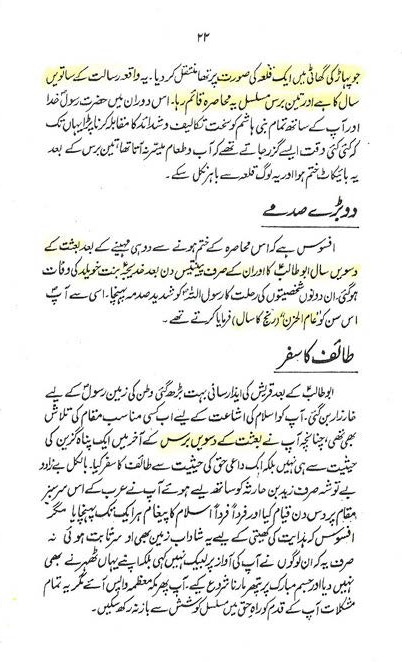 ۲۲
جو پہاڑ کی گھاٹی میں ایک قلعہ کی صورت پر تھا منتقل کر دیا۔ یہ واقعہ رسالت کے ساتویں
سال کا ہے اور تین برس مسلسل یہ محاصرہ قائم رہا۔ اس دوران میں حضرت رسولؐ خدا
اور آپ کے ساتھ تمام بنی ہاشم کو سخت تکالیف و شدائد کا مقابلہ کرنا پڑا یہاں تک
کہ کئی کئی وقت ایسے گزر جاتے تھے کہ آب و طعام میسر نہ آتا تھا تین برس کے بعد
یہ بائیکاٹ ختم ہوا اور یہ لوگ قلعہ سے باہر نکل سکے۔
دو بڑے صدمے
افسوس ہے کہ اس محاصرہ کے ختم ہونے سے دو ہی مہینے کے بعد بعثت کے
دسویں سال ابوطالبؑ کا اور ان کے صرف پینتیس دن بعد خدیجہؑ بنت خویلد کی وفات
ہو گئی۔ ان دونوں شخصیتوں کی رحلت کا رسولؐ اللہ کو شدید صدمہ پہنچا۔ اسی سے آپ
اس سن کو "عام الحزن" (رنج کا سال) فرمایا کرتے تھے۔
طائف کا سفر
ابوطالبؑ کے بعد قریش کی ایذا رسانی بہت بڑھ گئی وطن کی زمین رسولؐ کے لیے
خارزار بن گئی۔ آپ کو اسلام کی اشاعت کے لیے اب کسی مناسب مقام کی تلاش
بھی تھی، چنانچہ آپ نے بعثت کے دسویں برس کے آخر میں ایک پناہ گزین کی
حیثیت سے ہی نہیں بلکہ ایک داعی حق کی حیثیت سے طائف کا سفر کیا۔ بالکل بے زاد و
بے توشہ صرف زید بن حارثہ کو ساتھ لیے ہوئے آپ نے عرب کے اس سرسبز
مقام پر دس دن قیام کیا اور فرداً فرداً اسلام کا پیغام ہر ایک تک پہنچایا مگر
افسوس کہ ہدایت کی کھیتی کے لیے یہ شاداب زمین بھی اوسر ثابت ہوئی نہ
صرف یہ کہ ان لوگوں نے آپ کی آواز پر لبیک نہیں کہی بلکہ اپنے یہاں ٹھہرنے بھی
نہیں دیا اور جسم مبارک پر پتھر مارنا شروع کیے۔ آپ پھر مکہ معظمہ واپس آئے مگر یہ تمام
مشکلات آپ کے قدم کو راہ حق میں مسلسل کوشش سے باز نہ رکھ سکیں۔